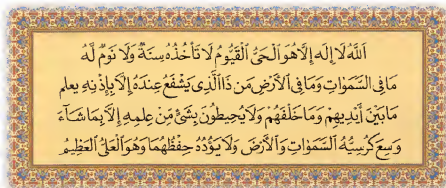 اَللّٰهُ لَا إِلٰهَ إِلَّا هُوَ اَلْحَيُّ الْقَيُّومُ لَا تَأْخُذُهُ سِنَةٌ وَلَا نَوْمٌ لَّهُ
مَا فِي السَّمٰوَاتِ وَمَا فِي الْأَرْضِ مَن ذَا الَّذِي يَشْفَعُ عِنْدَهُ إِلَّا بِإِذْنِهِ يعلم
مَا بَيْنَ أَيْدِيهِمْ وَمَا خَلْفَهُمْ وَلَا يُحِيطُونَ بِشَيْءٍ مِّنْ عِلْمِهِ إِلَّا بِمَا شَاءَ
وَسِعَ كُرْسِيُّهُ السَّمٰوَاتِ وَالْأَرْضَ وَلَا يَؤُدُهُ حِفْظُهُمَا وَهُوَ الْعَلِيُّ الْعَظِيمُ